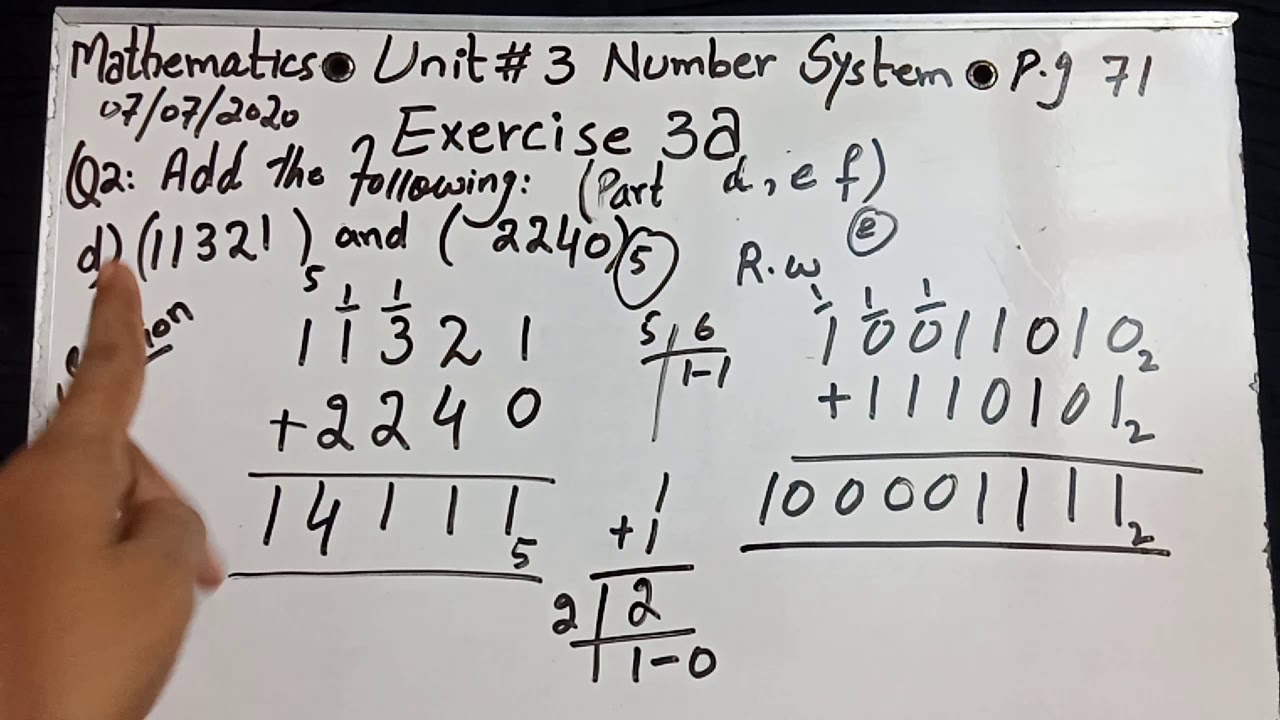 Mathematics • Unit # 3 Number System • P.g 71
07/07/2020
Exercise 3a
Q2: Add the following: (Part d, e f)
d) (11321)5 and (2240)5
1 1
1 1 3 2 1
+ 2 2 4 0
1 4 1 1 1 5
5 | 6
1 - 1
1
+ 1
2 | 2
1 - 0
e
R.w
1 1 1
1 0 0 1 1 0 1 0 2
+ 1 1 1 0 1 0 1 2
1 0 0 0 0 1 1 1 1 2